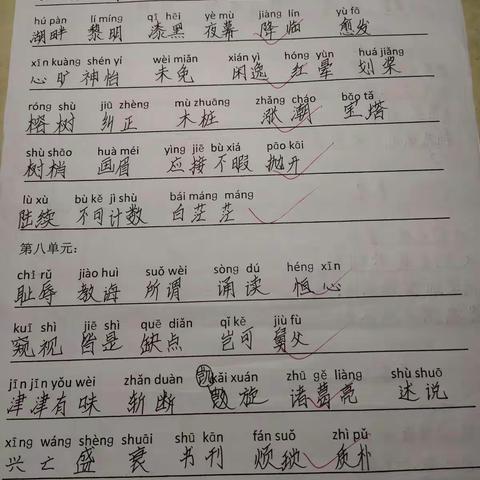 hú pàn lí míng qī hēi yè mù jiàng lín yù fā
湖畔 黎明 漆黑 夜幕 降临 愈发
xīn kuàng shén yí wèi miǎn xián yì hóng yùn huá jiǎng
心旷神怡 未免 闲逸 红晕 划桨
róng shù jiū zhèng mù zhuāng zhǎng cháo bǎo tǎ
榕树 纠正 木桩 涨潮 宝塔
shù shāo huà méi yìng jiē bù xiá pāo kāi
树梢 画眉 应接不暇 抛开
lù xù bù kě jì shù bái máng máng
陆续 不可计数 白茫茫
第八单元:
chǐ rǔ jiào huì suǒ wèi sòng dú héng xīn
耻辱 教诲 所谓 诵读 恒心
kuī shì jiē shì quē diǎn qǐ kě jiù fù
窥视 皆是 缺点 岂可 舅父
jīn jīn yǒu wèi zhǎn duàn kǎi xuán zhū gě liàng shù shuō
津津有味 斩断 凯旋 诸葛亮 述说
xīng wáng shèng shuāi shū kān fán suǒ zhì pǔ
兴亡盛衰 书刊 烦琐 质朴